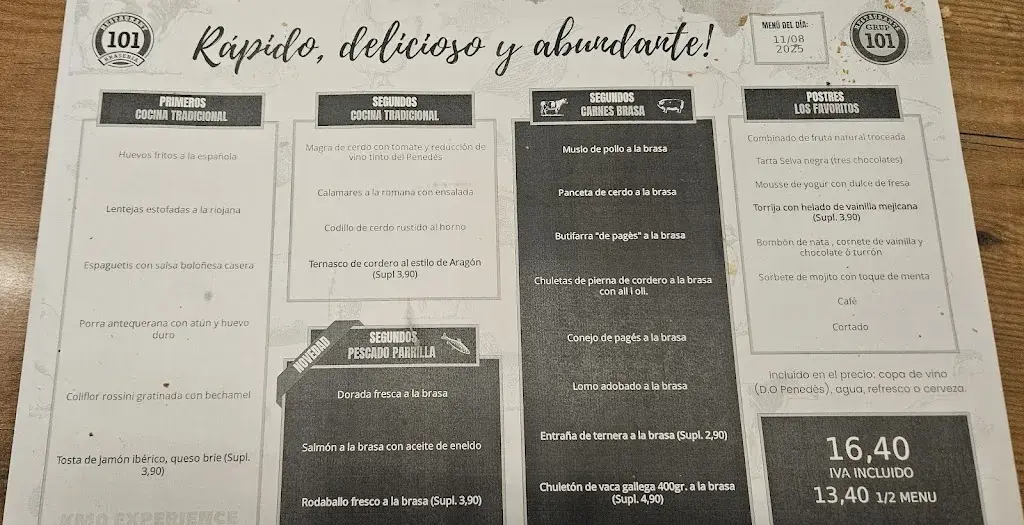 RESTAURANTE
101
BRASERIA
Rápido, delicioso y abundante!
MENÚ DEL DÍA:
11/08
2025
RESTAURANTE
GRUP
101
PRIMEROS
COCINA TRADICIONAL
Huevos fritos a la española
Lentejas estofadas a la riojana
Espaguetis con salsa boloñesa casera
Porra antequerana con atún y huevo
duro
Coliflor rossini gratinada con bechamel
Tosta de Jamón ibérico, queso brie (Supl.
3,90)
EXPERIENCE
SEGUNDOS
COCINA TRADICIONAL
Magra de cerdo con tomate y reducción de
vino tinto del Penedés
Calamares a la romana con ensalada
Codillo de cerdo rustido al horno
Ternasco de cordero al estilo de Aragón
(Supl 3,90)
NOVEDAD
SEGUNDOS
PESCADO PARRILLA
Dorada fresca a la brasa
Salmón a la brasa con aceite de eneldo
Rodaballo fresco a la brasa (Supl. 3,90)
SEGUNDOS
CARNES BRASA
Muslo de pollo a la brasa
Panceta de cerdo a la brasa
Butifarra "de pagès" a la brasa
Chuletas de pierna de cordero a la brasa
con all i oli.
Conejo de pagés a la brasa
Lomo adobado a la brasa
Entraña de ternera a la brasa (Supl. 2,90)
Chuletón de vaca gallega 400gr. a la brasa
(Supl. 4,90)
POSTRES
LOS FAVORITOS
Combinado de fruta natural troceada
Tarta Selva negra (tres chocolates)
Mousse de yogur con dulce de fresa
Torrija con helado de vainilla mejicana
(Supl. 3,90)
Bombón de nata , cornete de vainilla y
chocolate ó turrón
Sorbete de mojito con toque de menta
Café
Cortado
Incluido en el precio: copa de vino
(D.O Penedès), agua, refresco o cerveza.
16,40
IVA INCLUIDO
13,40 1/2 MENU